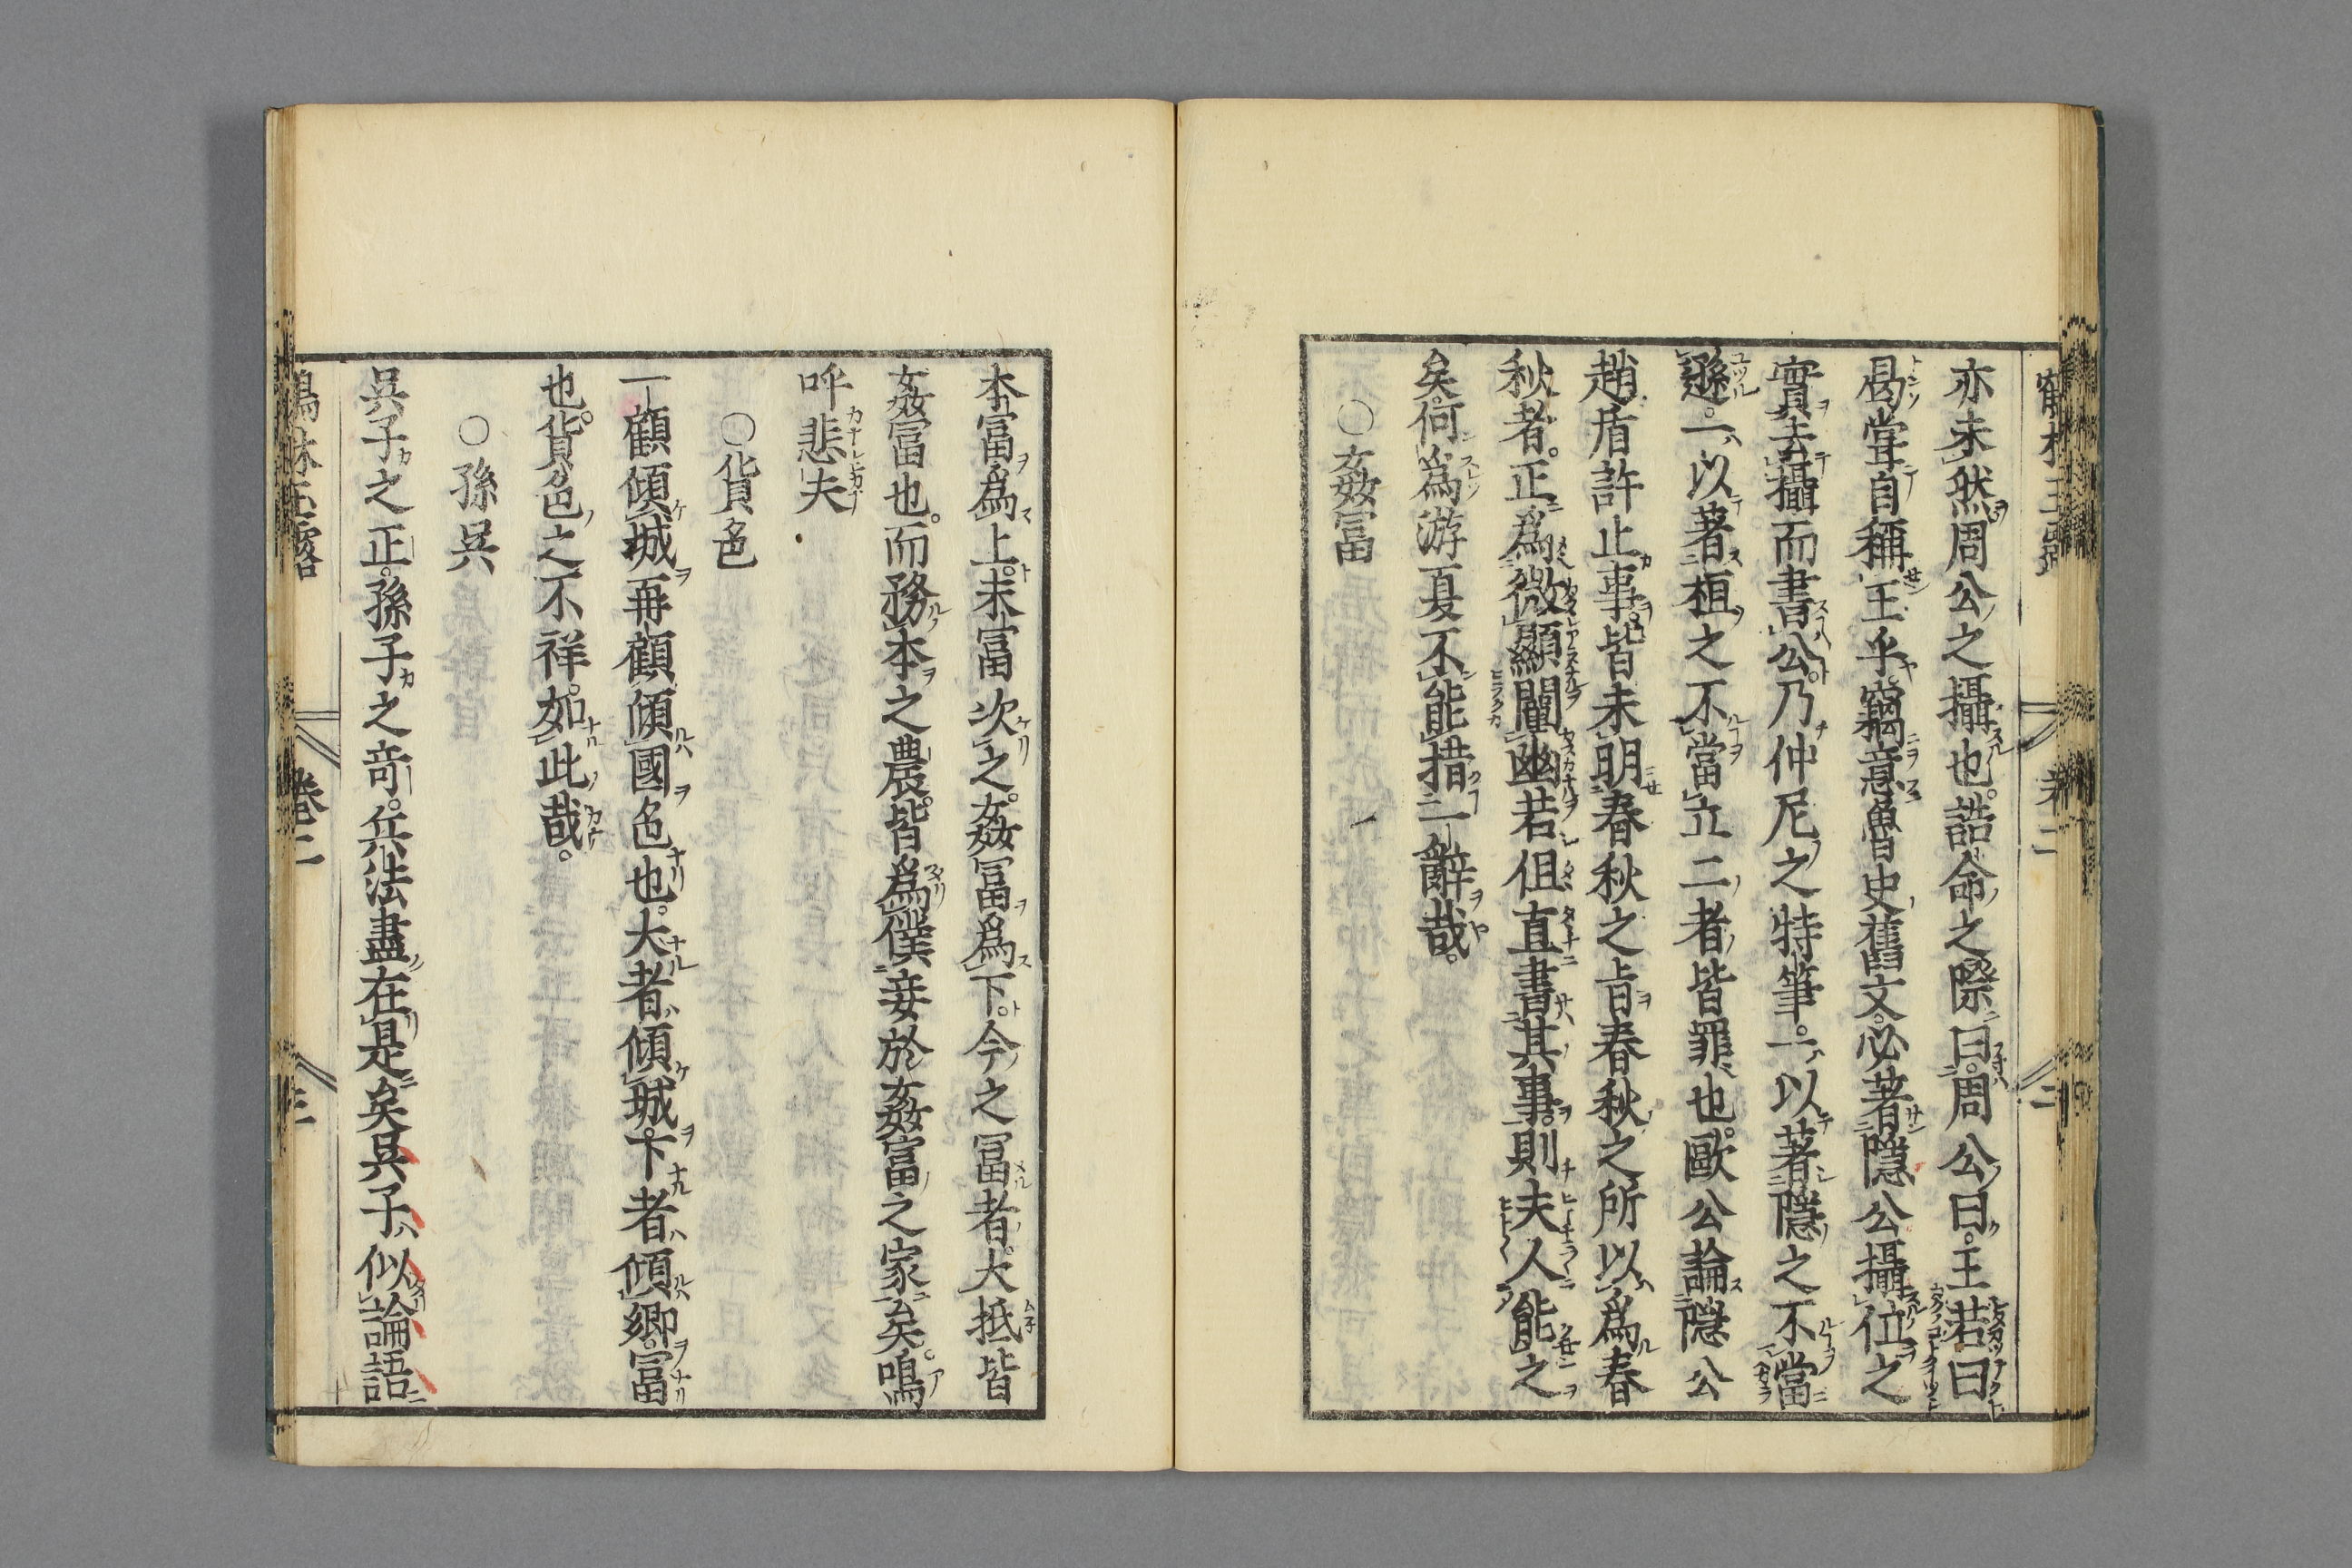 亦未然周公之攝也。誥命之際曰。周公曰。王若曰
曷嘗自稱王乎。竊意魯史舊文。必著隱公攝位之
實去攝而書公。乃仲尼之特筆。一以著隱之不當
遜。一以著桓之不當立二者皆罪也。歐公論隱公
趙盾許止事。皆未明春秋之旨春秋之所以爲春
秋者。正爲微顯闡幽若但直書其事。則夫人能之
矣。何爲游夏不能措一辭哉。
○姦富
本富爲上。末富次之。姦富爲下。今之富者。大抵皆
姦富也。而務本之農。皆爲僕妾於姦富之家矣。嗚
呼悲夫
○貨色
一顧傾城。再顧傾國色也。大者傾城。下者傾鄉。富
也。貨色之不祥。如此哉。
○孫吳
吳子之正。孫子之奇。兵法盡在是矣吳子似論語
鶴林玉露 卷二 三